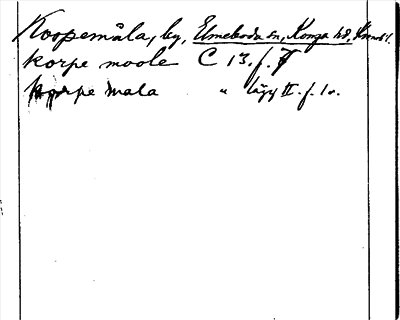 Koopemåla, by, Elmeboda sn, Konga hd, Kronob l.
korpe moole C 13. f. 7
korpe mala " lägg II. f. 10.